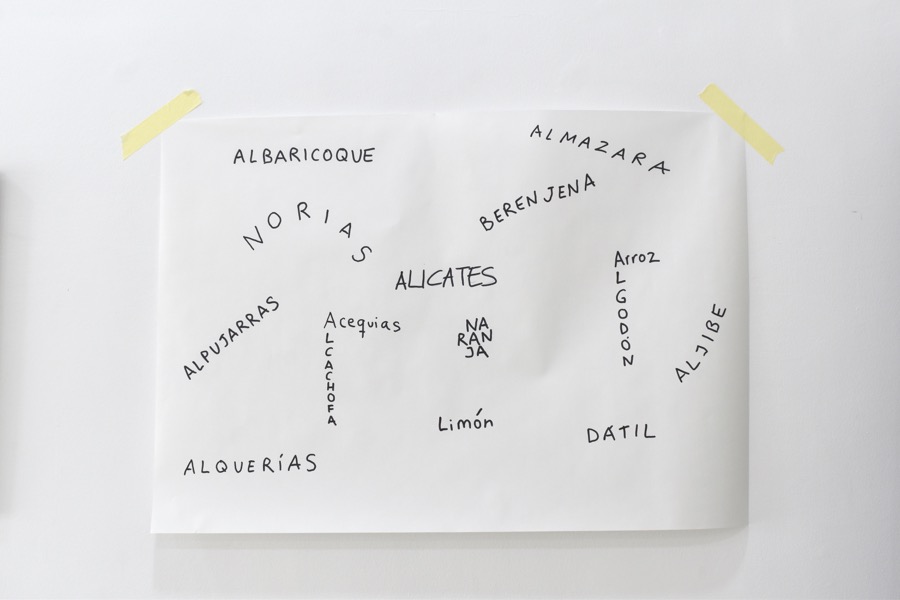 ALBARICOQUE
ALMAZARA
BERENJENA
NORIAS
ALICATES
Arroz
ALGODÓN
ALPUJARRAS
Acequias
ALCACHOFA
NA
RAN
JA
ALJIBE
Limón
DÁTIL
ALQUERÍAS